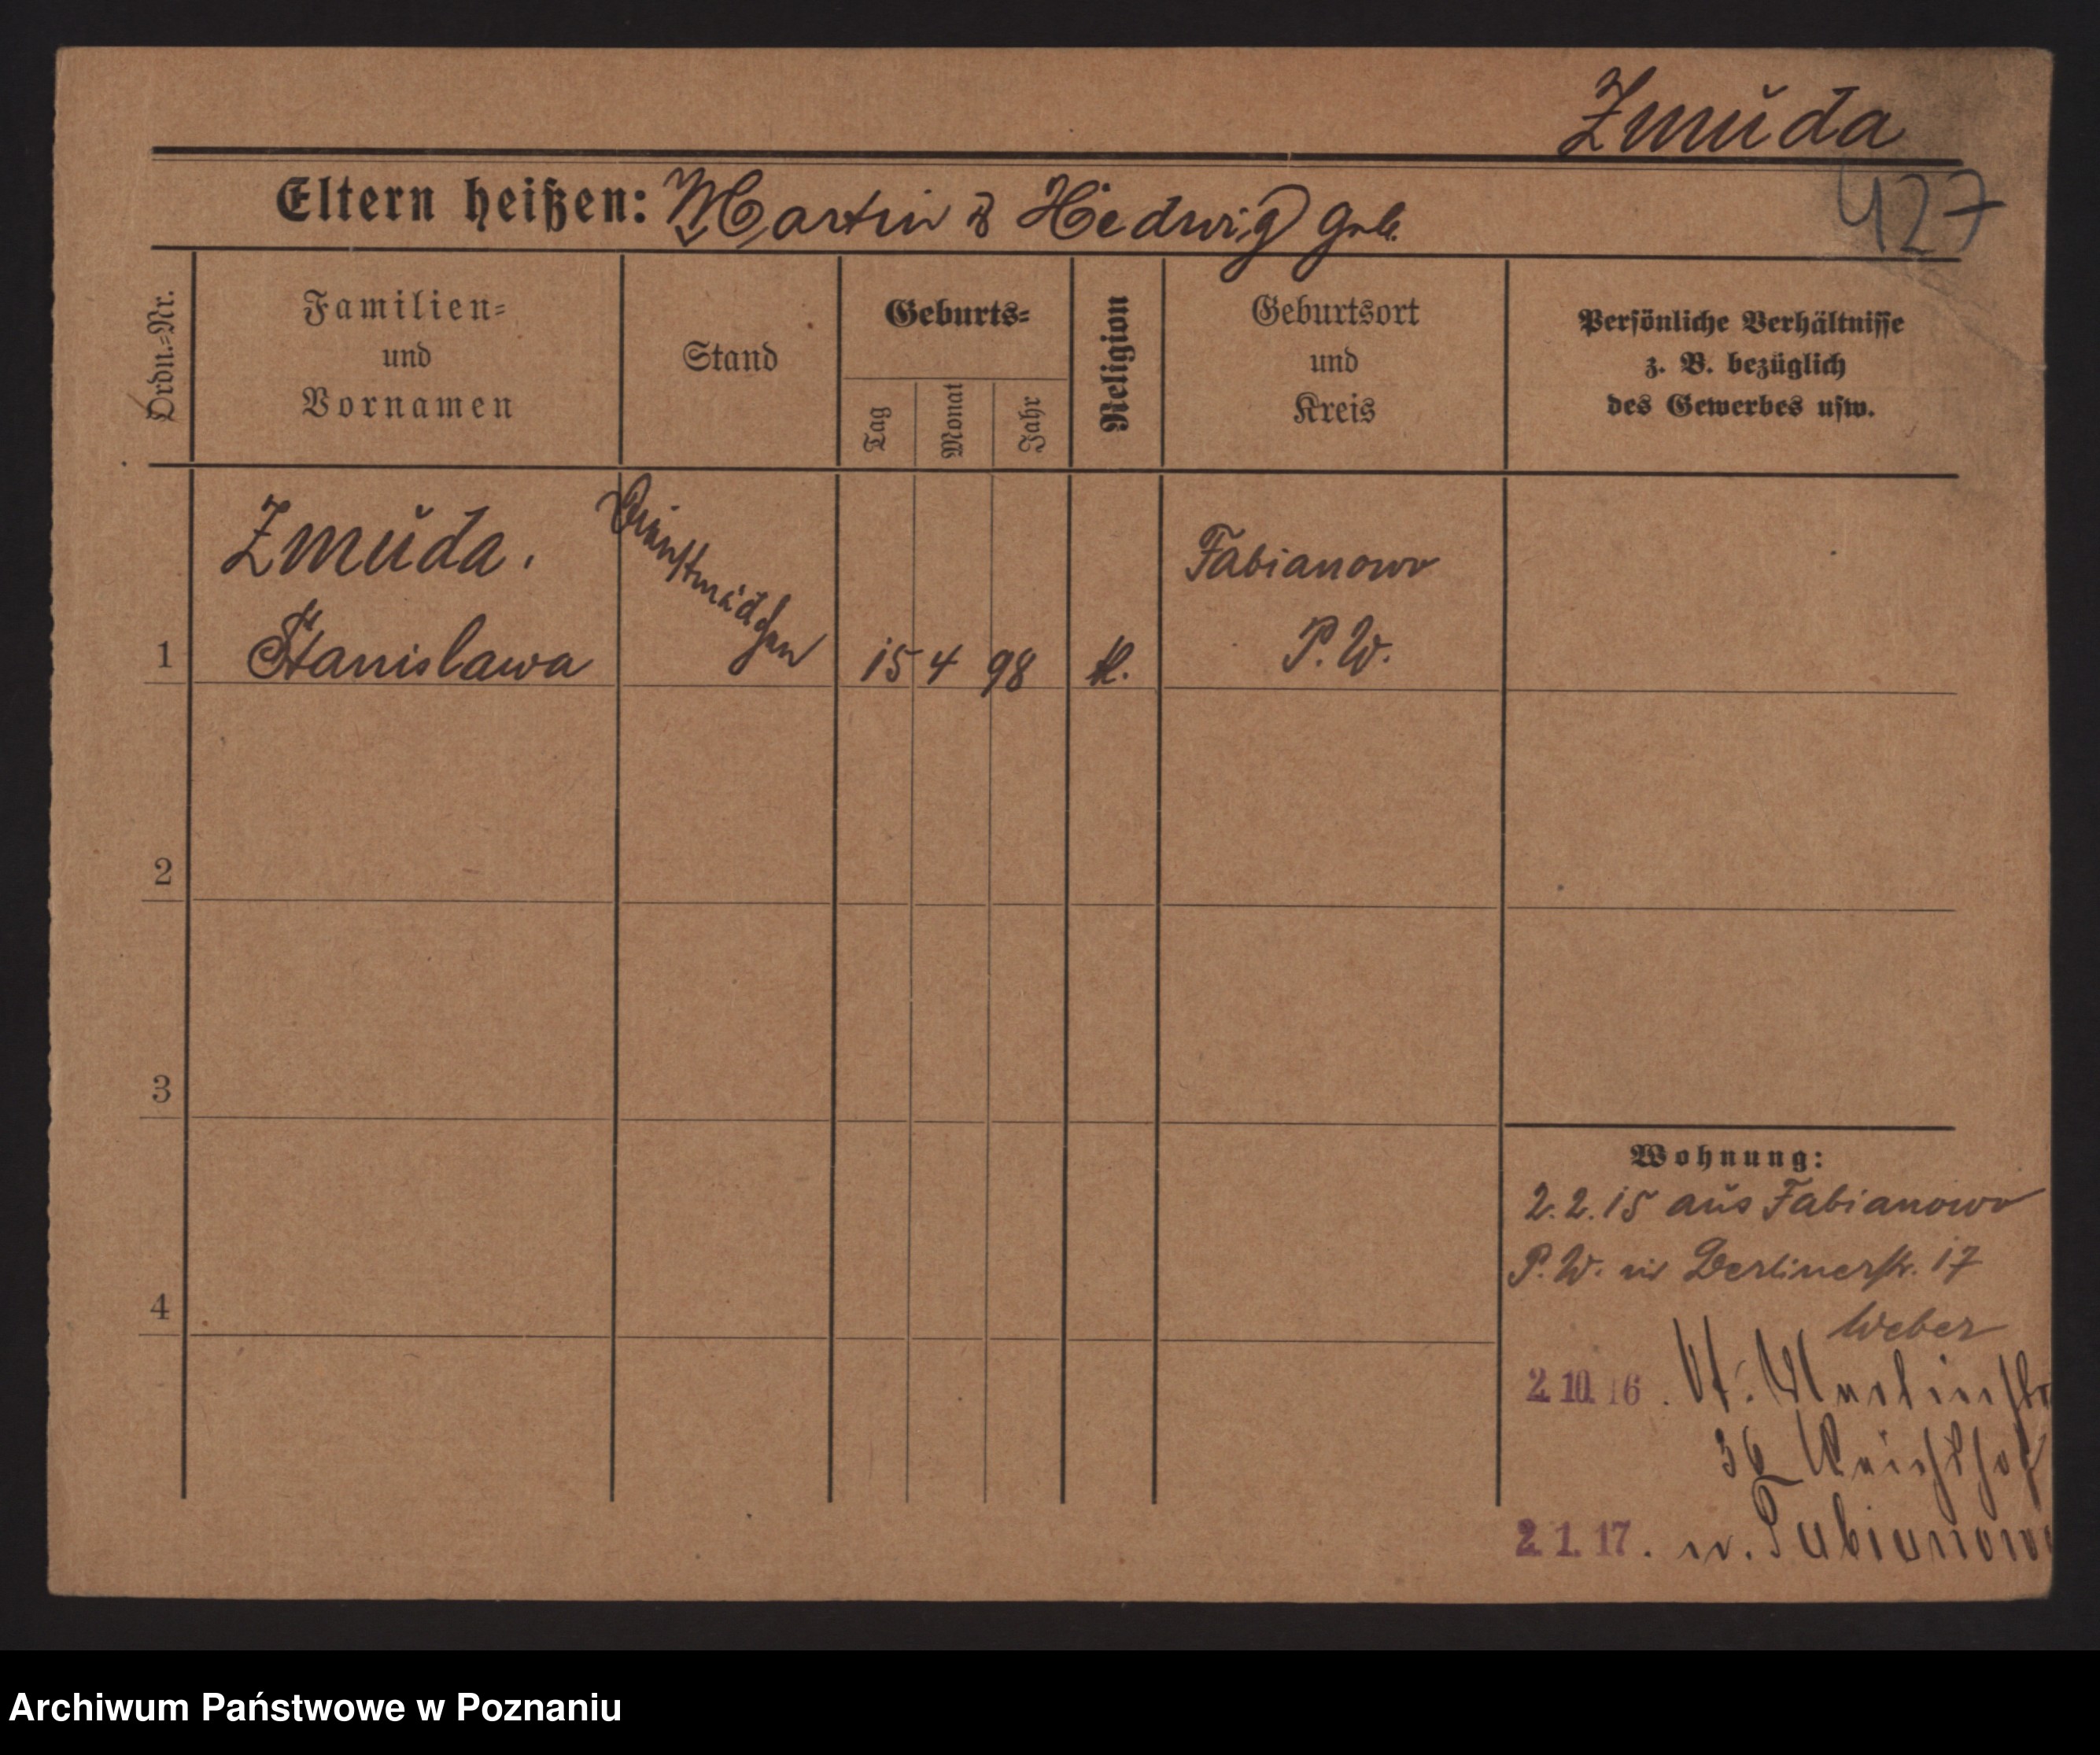 Zmuda
427
Eltern heißen: Martin & Hedwig geb.
Ordn.-Nr.
Familien-
und
Vornamen
Stand
Geburts-
Tag
Monat
Jahr
Religion
Geburtsort
und
Kreis
Persönliche Verhältnisse
z. B. bezüglich
des Gewerbes usw.
Zmuda.
Stanislawa
Dienstmädchen
1
15 4 98
k.
Fabianowo
P.W.
2
3
4
Wohnung:
2.2.15 aus Fabianowo
P.W. in Berlinerstr. 17
Weber
2.10.16.
36
2.1.17. n. Fabianowo
Archiwum Państwowe w Poznaniu